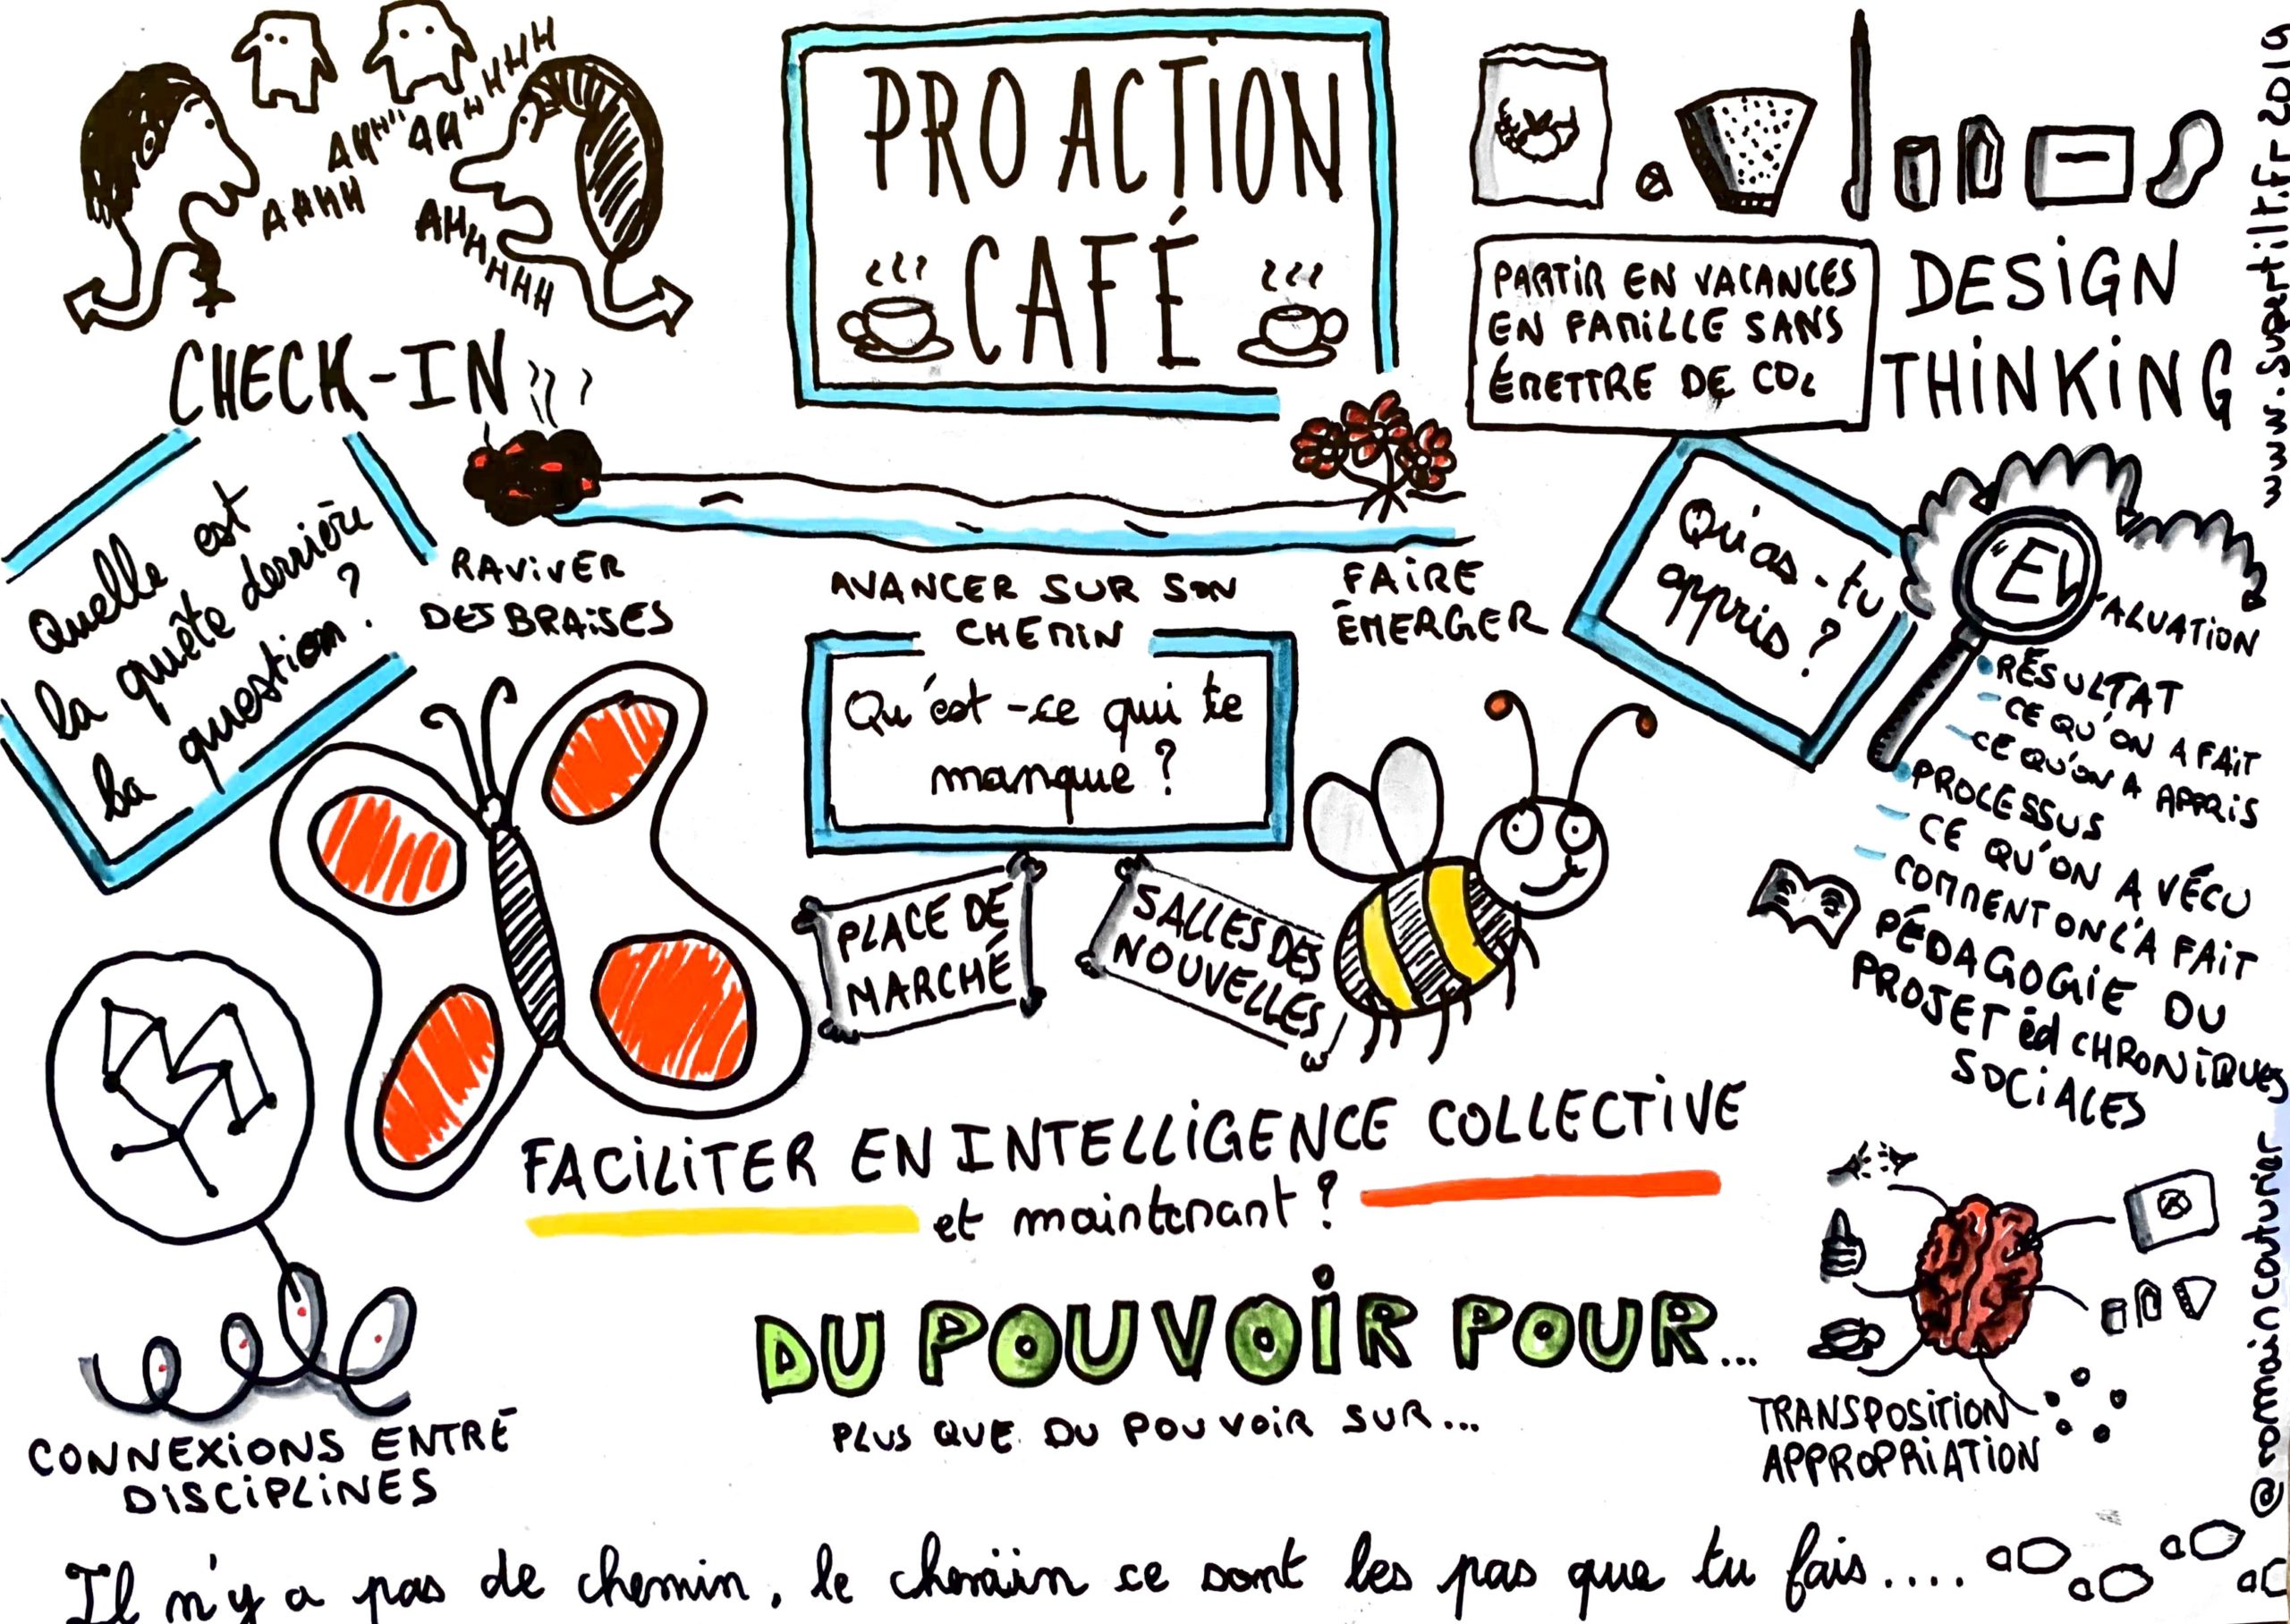 AHH" AHHHHH
AHHHH
AHHHHHH
CHECK-IN
PRO ACTION
CAFÉ
PARTIR EN VACANCES
EN FAMILLE SANS
ÉMETTRE DE CO2
DESIGN
THINKING
Quelle est
la quête derrière
la question ?
RAVIVER
DES BRAISES
AVANCER SUR SON
CHEMIN
FAIRE
ÉMERGER
Qu'est-ce qui te
manque ?
Qu'as-tu
appris ?
"EVALUATION
RÉSULTAT
- CE QU'ON A FAIT
- CE QU'ON A APPRIS
PROCESSUS
- CE QU'ON A VÉCU
- COMMENT ON L'A FAIT
PÉDAGOGIE DU
PROJET éd CHRONIQUES
SOCIALES
PLACE DE
MARCHÉ
SALLES DES
NOUVELLES
FACILITER EN INTELLIGENCE COLLECTIVE
et maintenant ?
DU POUVOIR POUR...
PLUS QUE DU POUVOIR SUR...
CONNEXIONS ENTRE
DISCIPLINES
TRANSPOSITION
APPROPRIATION
Il n'y a pas de chemin, le chemin ce sont les pas que tu fais....
@romaincouturier
www.supertilt.fr 2019